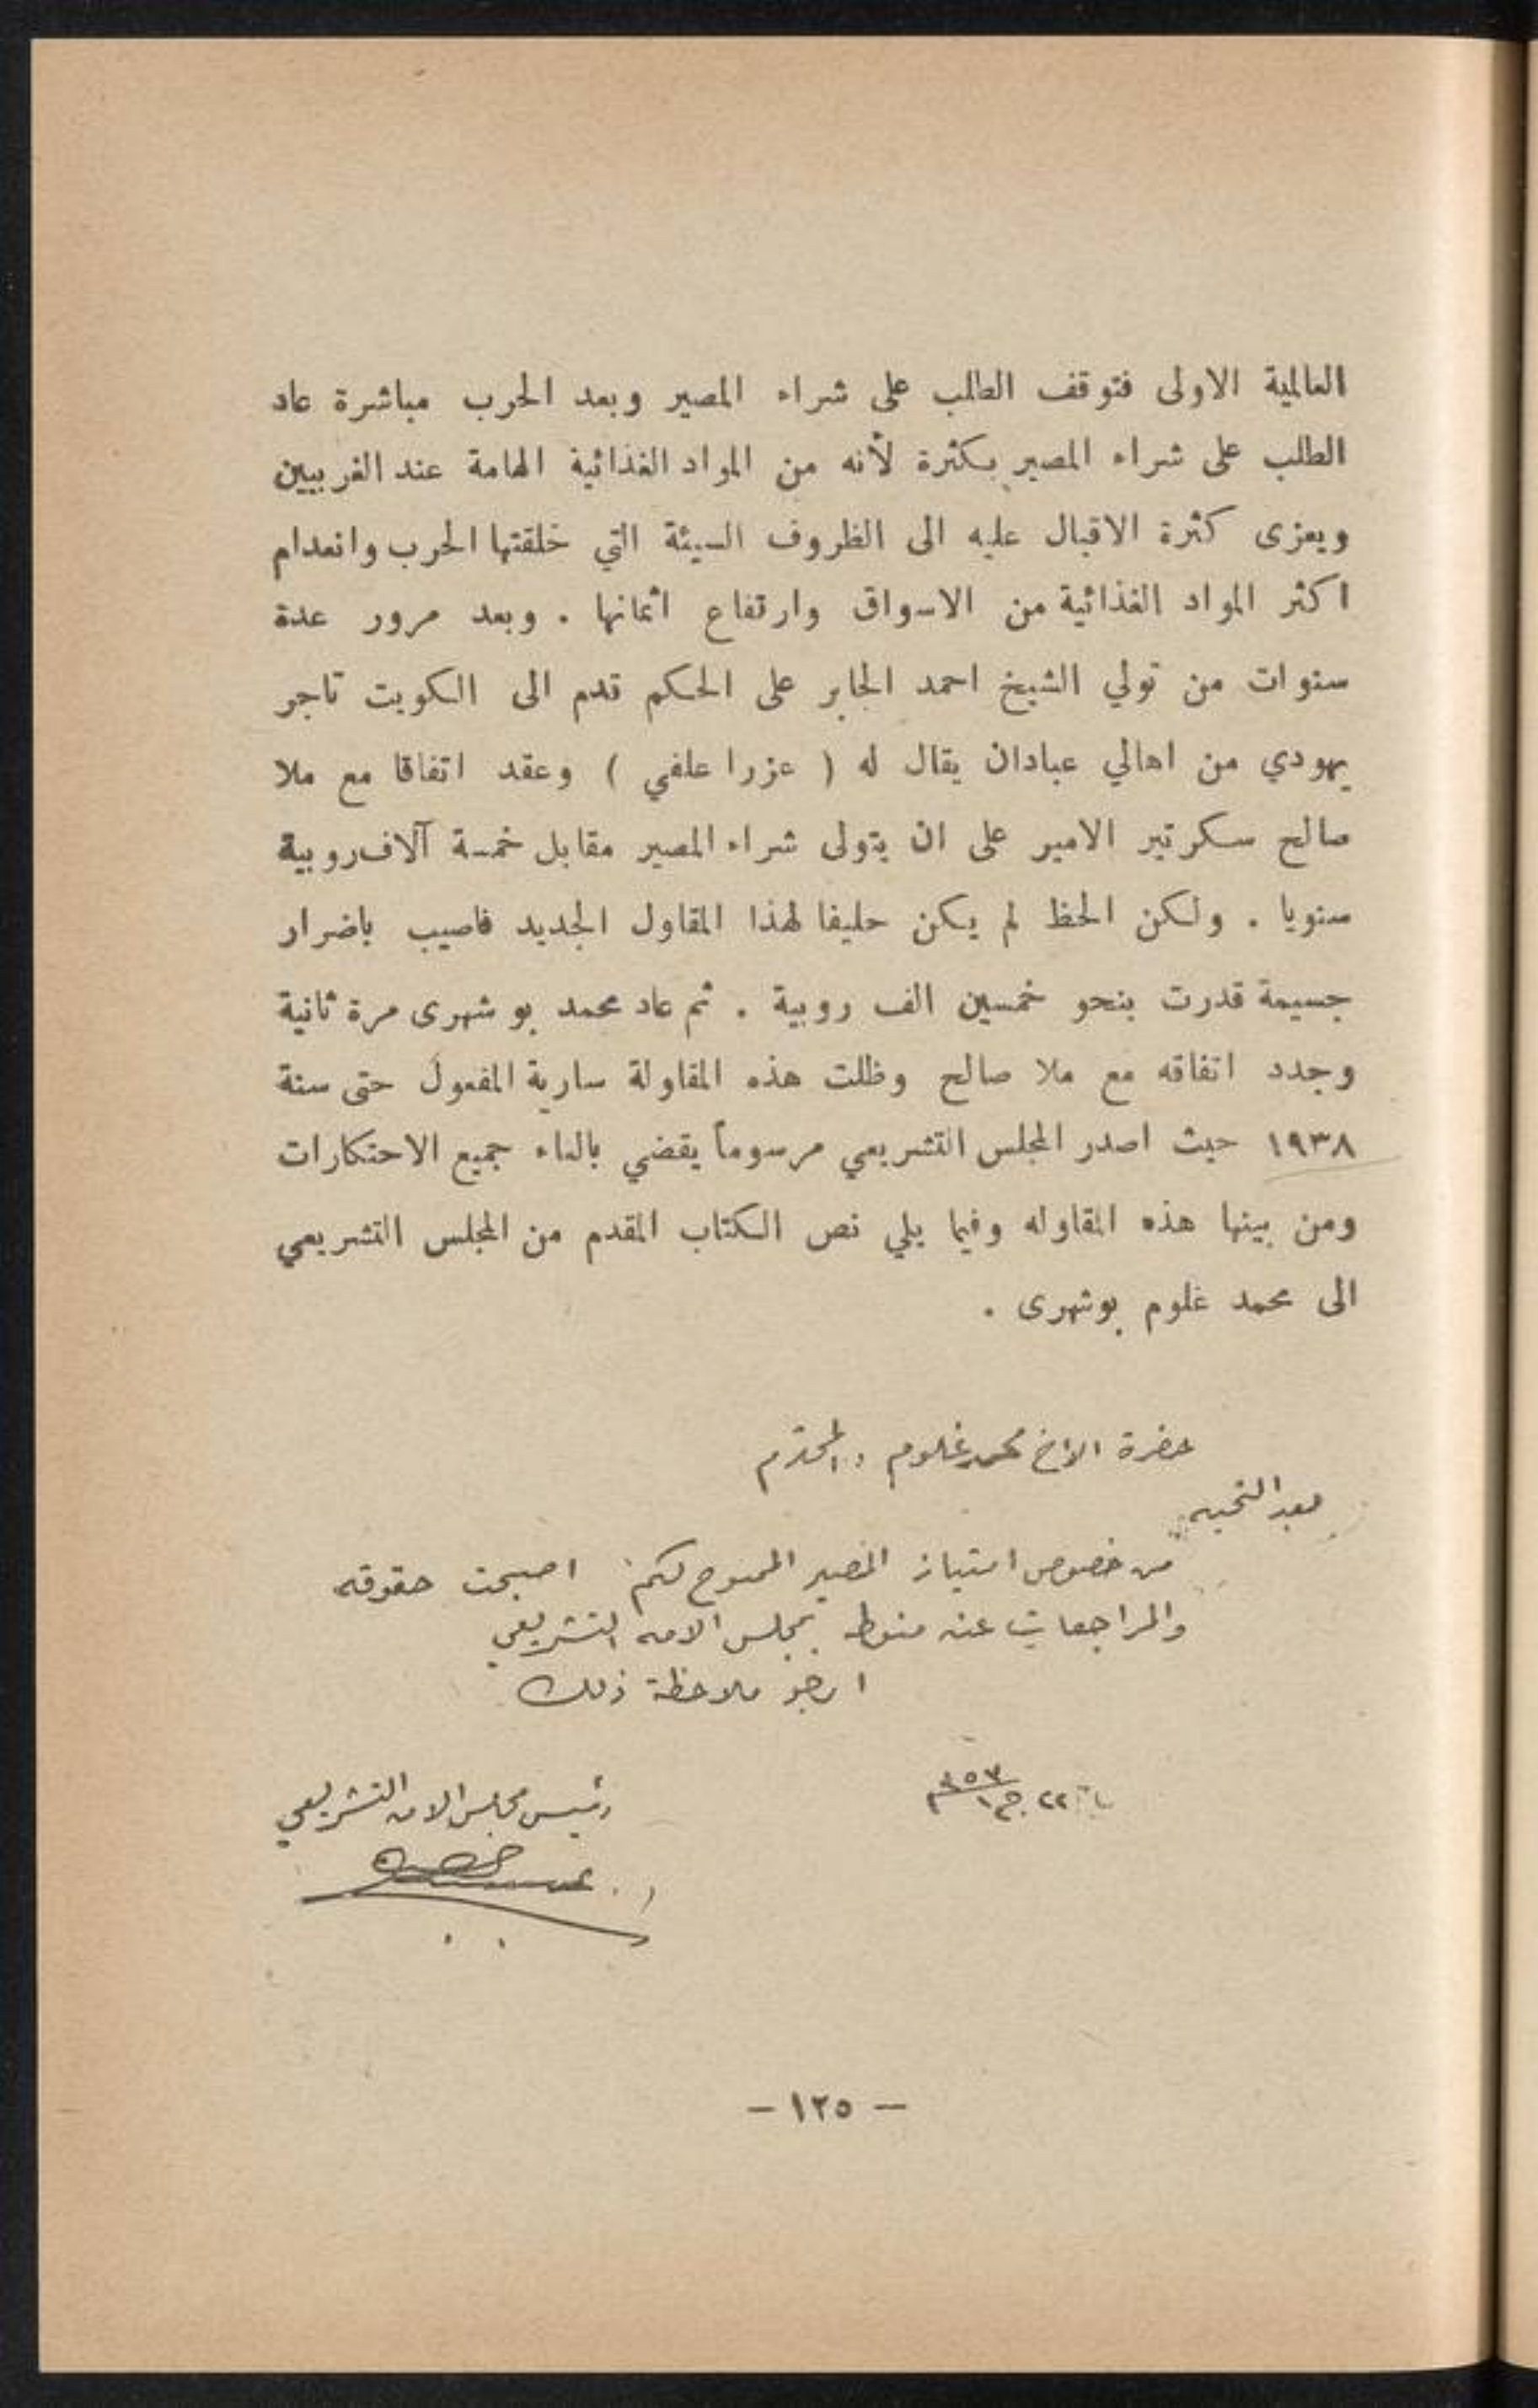 العالمية الاولى فتوقف الطلب على شراء المصير وبعد الحرب مباشرة عاد
الطلب على شراء المصير بكثرة لأنه من المواد الغذائية الهامة عند الغربيين
ويعزى كثرة الاقبال عليه الى الظروف السيئة التي خلقتها الحرب وانعدام
اكثر المواد الغذائية من الاسواق وارتفاع اثمانها . وبعد مرور عدة
سنوات من تولي الشيخ احمد الجابر على الحكم قدم الى الكويت تاجر
يهودي من اهالي عبادان يقال له ( عزرا علفي ) وعقد اتفاقا مع ملا
صالح سكرتير الامير على ان يتولى شراء المصير مقابل خمسة آلاف روبية
سنويا . ولكن الحظ لم يكن حليفا لهذا المقاول الجديد فاصيب باضرار
جسيمة قدرت بنحو خمسين الف روبية . ثم عاد محمد بوشهرى مرة ثانية
وجدد اتفاقه مع ملا صالح وظلت هذه المقاولة سارية المفعول حتى سنة
١٩٣٨ حيث اصدر المجلس التشريعي مرسوماً يقضي بالغاء جميع الاحتكارات
ومن بينها هذه المقاوله وفيما يلي نص الكتاب المقدم من المجلس التشريعي
الى محمد غلوم بوشهرى .
حضرة الاخ محمد غلوم المحترم
بعد التحيه
من خصوص امتياز المصير الممنوح لكم اصبحت حقوقه
والمراجعات عنه منوط بمجلس الامه التشريعي
ارجو ملاحظة ذلك
٢٢
رئيس مجلس الامه التشريعي
— ١٢٥ —